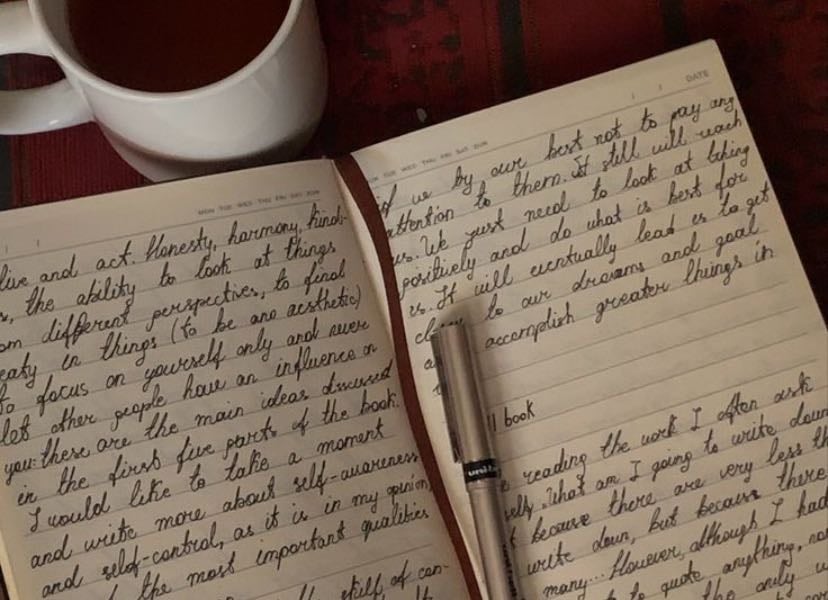 MON TUE WED THU FRI SAT SUN
live and act. Honesty, harmony, kind-
the ability to look at things
different perspectives, to find
in things (to be ano aesthetic)
to focus on yourself only and never
let other people have an influence on
you: these are the main ideas discussed
in the first five parts of the book.
I would like to take a moment
and write more about self-awareness
and self-control, as it is in my opinion,
the most important qualities
skill of con-
TUE WED THU FRI SAT SUN
DATE
if we by our best not to pay any
attention to them. It still will reach
us. We just need to look at things
positively and do what is best for
us. It will eventually lead us to get
to our dreams and goal
accomplish greater things in
book
reading the work I often ask
What am I going to write down
because there are very less
write down, but because there
many... However, although I had
to quote anything,
the only
uni